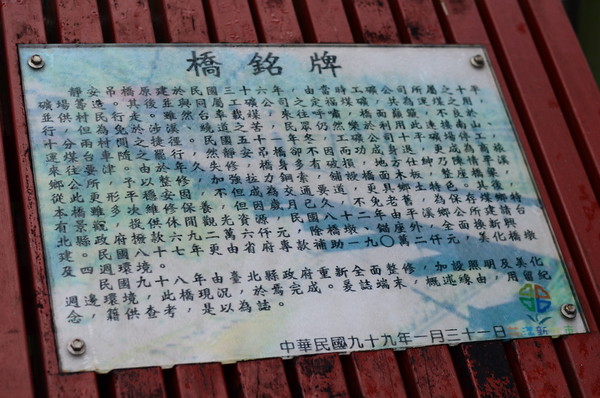 橋銘牌
靜安吊橋原建於民國三十六年，由當時工礦公司所屬之十平
礦場籌造。其後並與同屬工礦公司之定福煤礦，共為運煤之用，
並供村民行走。雖然台車載煤，來往呼嘯，橋面顛簸，不善於
行，但為免於涉溪、繞道之苦，民眾仍然樂於利用此連接南山、
十分兩村間之捷徑。民國五十一年冬，工礦公司平礦場停工，
運煤台車隨之罷行，然靜安吊橋卻不因而功成身退，更成為商旅
來往要津。由於年久失修，橋身多有破損，地方仕紳乃陳情平溪
鄉公所，予以整修，加強拉力鋼索，舖設橋面木板，整座橋樑，
從此更形平穩安固，不但成為交通要道，更具鄉土特色。其後，
本橋雖多次維修保養，但因歲月已久，不免老舊，為保存煤鄉特
有景觀，提供休閒觀光資源，民國八十二年由平溪鄉公所建請台
北縣政府撥款六九二萬六仟元，除橋墩、錨座外，全面換新興
建。民國八十七年更由省府專款補助一九〇萬二仟元，美化橋墩
及四週環境。
民國九十八年由臺北縣政府重新全面整修，加設照明及美化
週邊環境，此橋現況，於焉完成。爰誌端末，概述緣由，用留紀
念，藉供查考，是以為誌。
中華民國九十九年一月三十一日